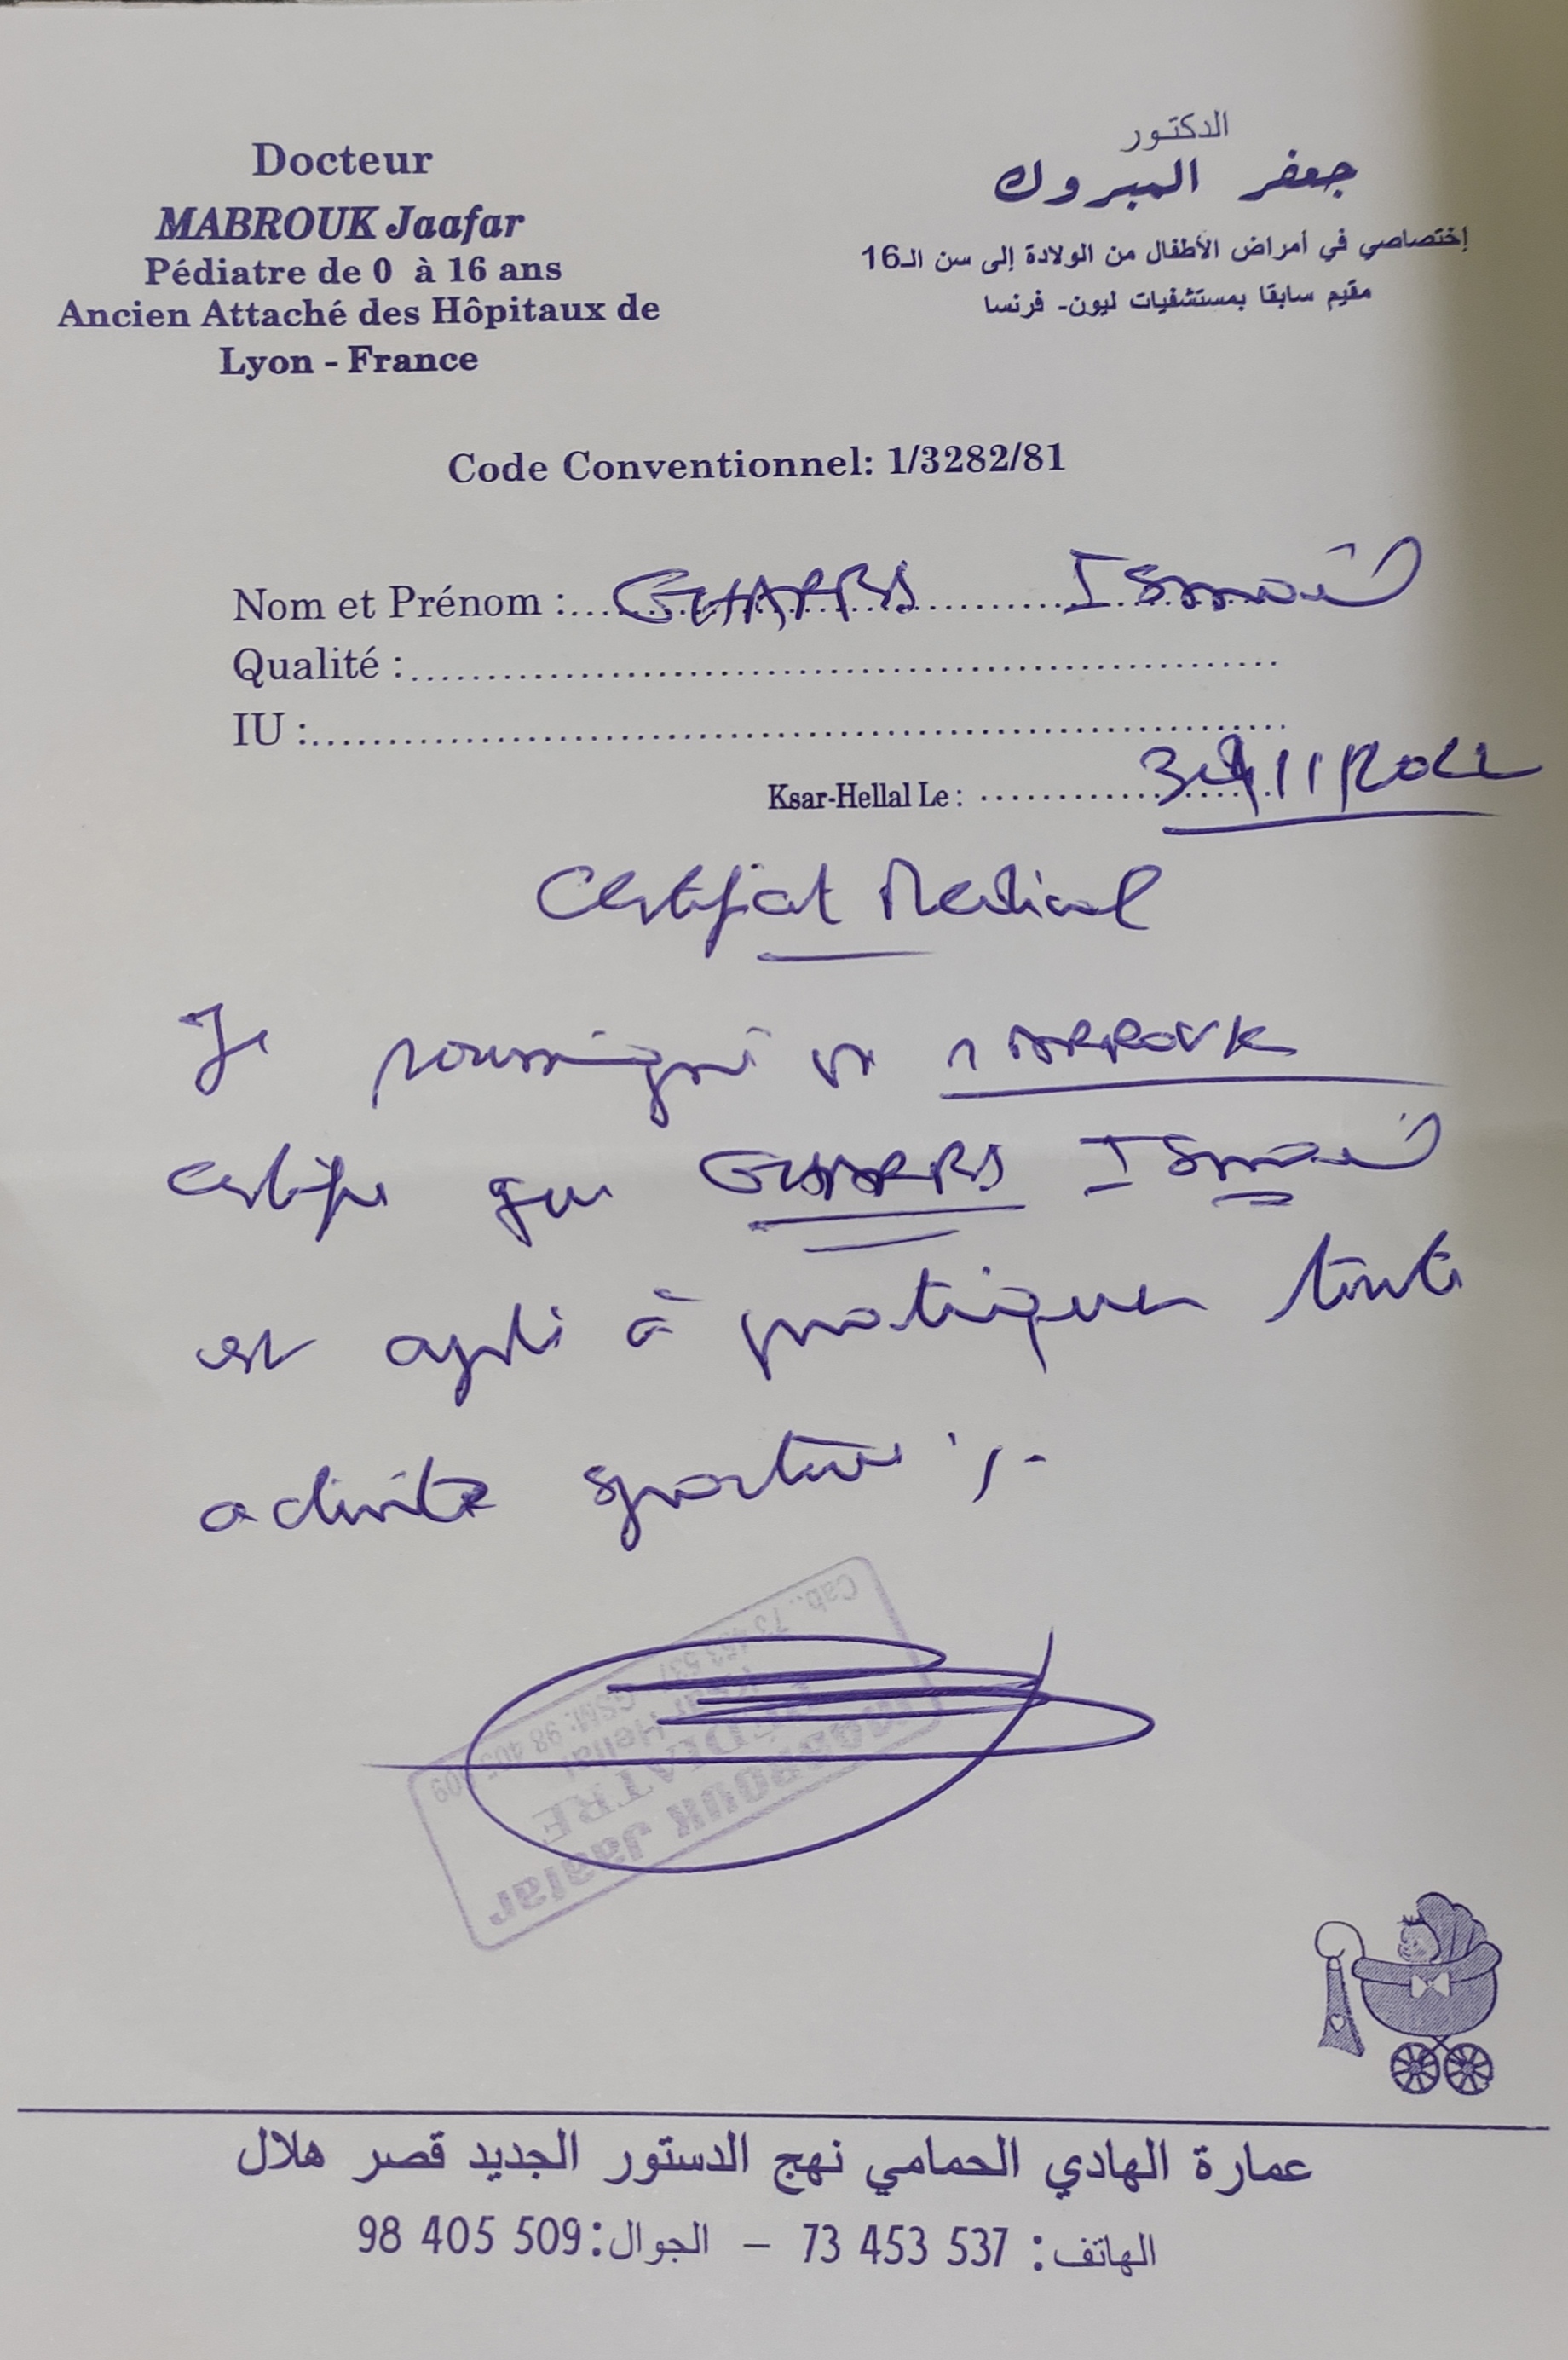 Docteur
MABROUK Jaafar
Pédiatre de 0 à 16 ans
Ancien Attaché des Hôpitaux de
Lyon - France
الدكتور
جعفر المبروك
إختصاصي في أمراض الأطفال من الولادة إلى سن الـ16
مقيم سابقا بمستشفيات ليون- فرنسا
Code Conventionnel: 1/3282/81
Nom et Prénom : Ismail
Qualité :
IU :
Ksar-Hellal Le : 11/2022
Certificat Medical
Je soussigné Dr MABROUK
certifie que Ismail
est apte à pratiquer toute
activité sportive /.
MABROUK Jaafar
PÉDIATRE
Ksar Hellal
Cab.: 73 453 537 GSM: 98 405 509
عمارة الهادي الحمامي نهج الدستور الجديد قصر هلال
الهاتف: 537 453 73 – الجوال: 509 405 98